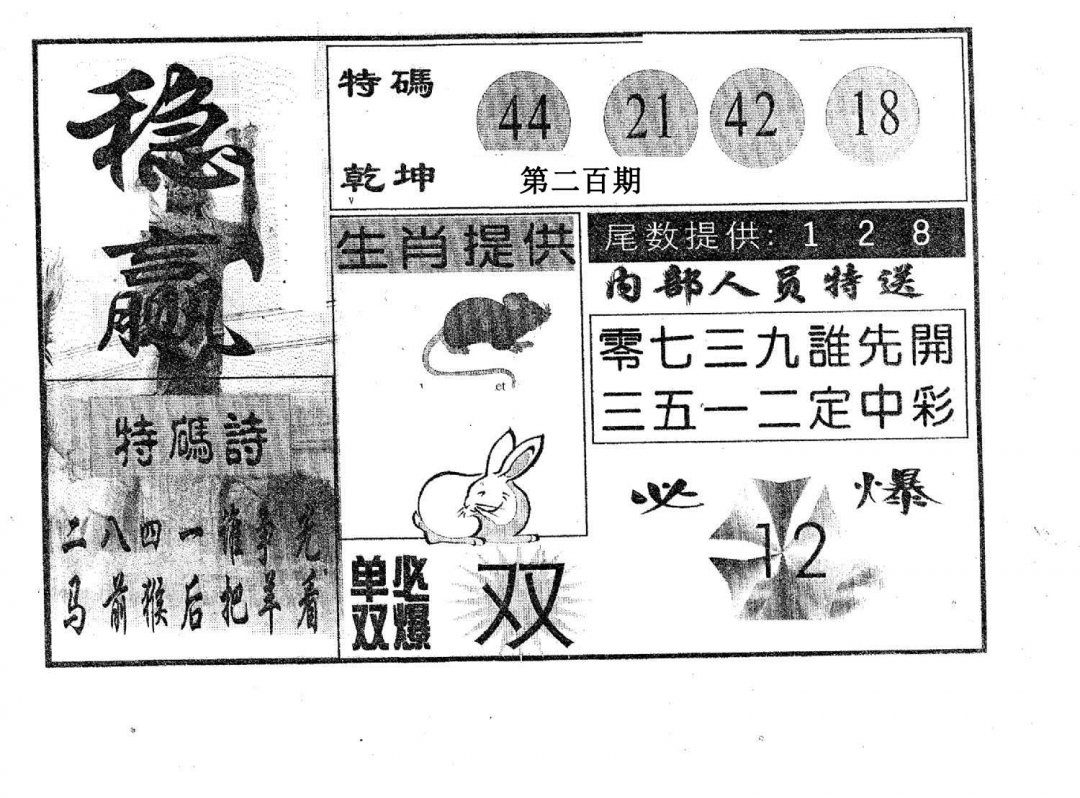 稳赢
特碼 44 21 42 18
乾坤 第二百期
生肖提供
尾数提供: 1 2 8
内部人员特送
零七三九誰先開
三五一二定中彩
特碼詩
二八四一谁争先
马前猴后把羊看
必爆
12
单双必爆
双